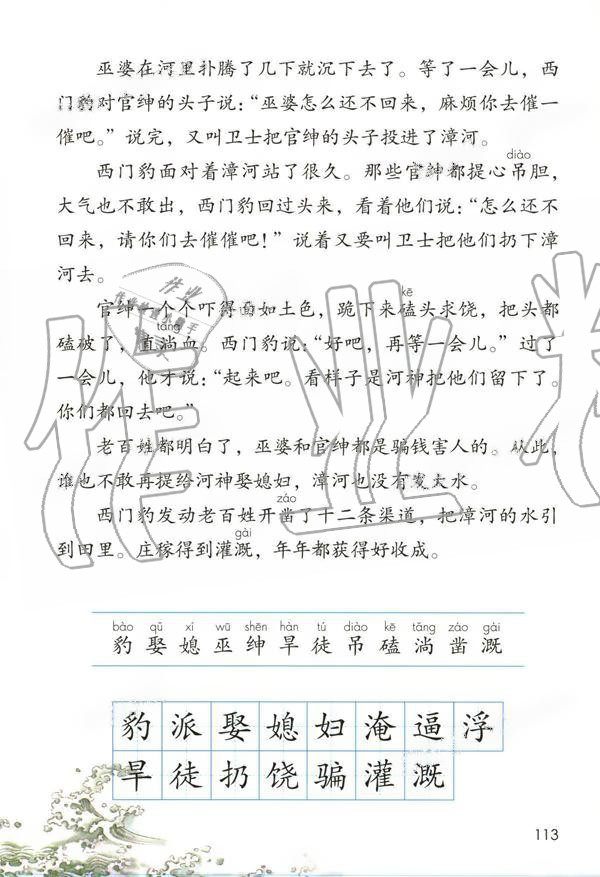 巫婆在河里扑腾了几下就沉下去了。等了一会儿，西
门豹对官绅的头子说：“巫婆怎么还不回来，麻烦你去催一
催吧。”说完，又叫卫士把官绅的头子投进了漳河。
diào
西门豹面对着漳河站了很久。那些官绅都提心吊胆，
大气也不敢出，西门豹回过头来，看着他们说：“怎么还不
回来，请你们去催催吧！”说着又要叫卫士把他们扔下漳
河去。
kē
官绅一个个吓得面如土色，跪下来磕头求饶，把头都
tǎng
磕破了，直淌血。西门豹说：“好吧，再等一会儿。”过了
一会儿，他才说：“起来吧。看样子是河神把他们留下了。
你们都回去吧。”
老百姓都明白了，巫婆和官绅都是骗钱害人的。从此，
谁也不敢再提给河神娶媳妇，漳河也没有发大水。
záo
西门豹发动老百姓开凿了十二条渠道，把漳河的水引
gài
到田里。庄稼得到灌溉，年年都获得好收成。
bào qǔ xí wū shēn hàn tú diào kē tǎng záo gài
豹 娶 媳 巫 绅 旱 徒 吊 磕 淌 凿 溉
豹 派 娶 媳 妇 淹 逼 浮
旱 徒 扔 饶 骗 灌 溉
113
作业
作业